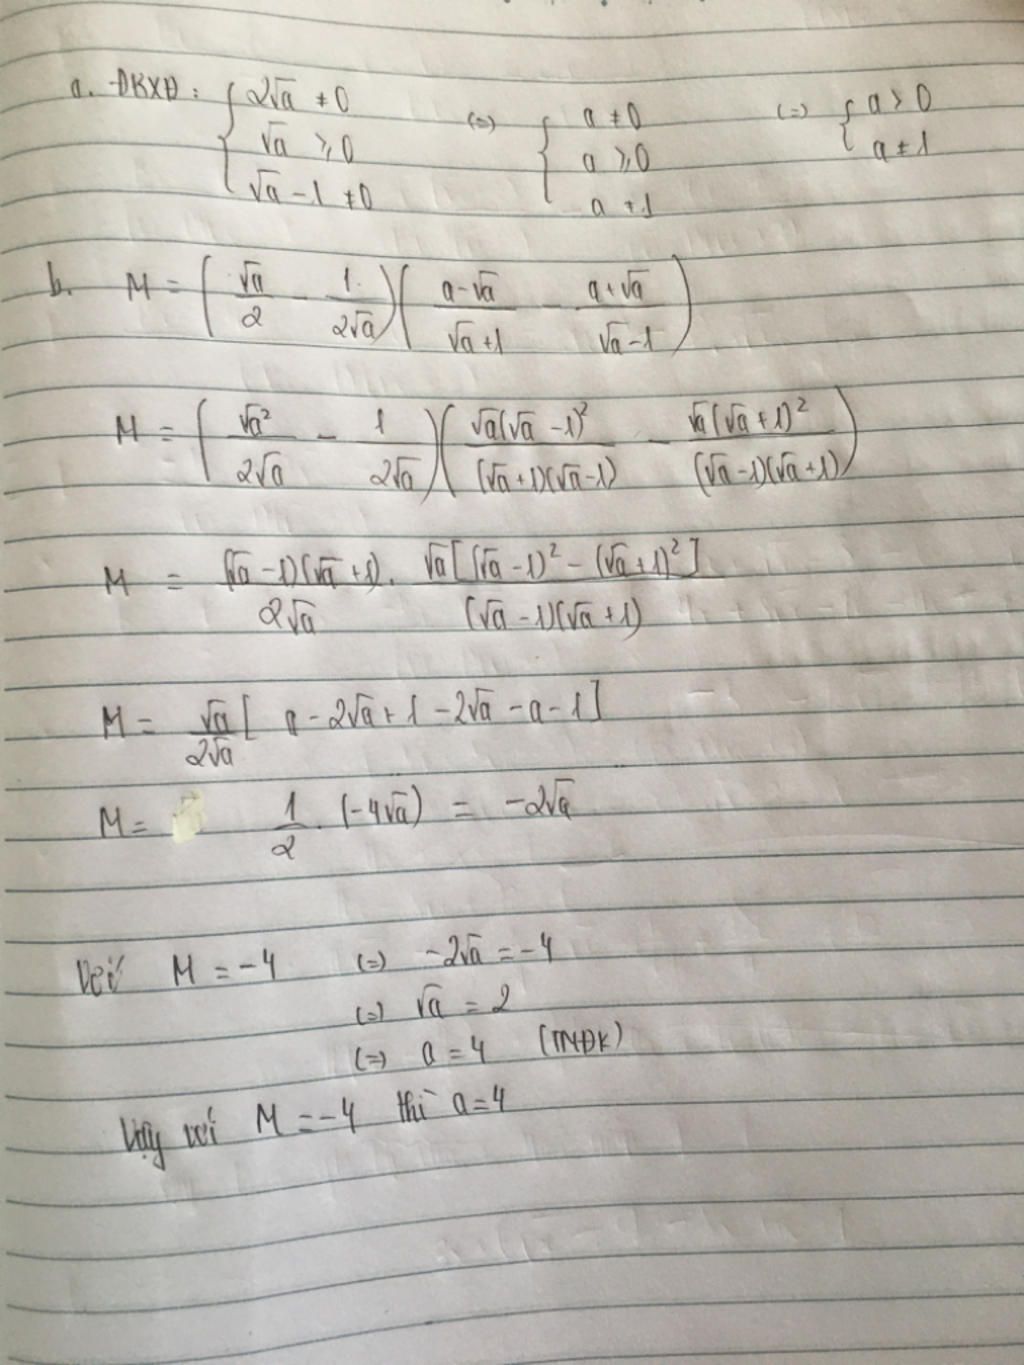 a. ĐKXĐ: { 2√a ≠ 0 (=) { a ≠ 0 (=) { a > 0
√a ≥ 0 a ≥ 0 a ≠ 1
√a - 1 ≠ 0 a ≠ 1
b. M = ( √a/2 - 1/2√a )( a-√a/√a+1 - a+√a/√a-1 )
M = ( √a²/2√a - 1/2√a )( √a(√a-1)²/(√a+1)(√a-1) - √a(√a+1)²/(√a-1)(√a+1) )
M = (√a-1)(√a+1)/2√a . √a[(√a-1)² - (√a+1)²]/(√a-1)(√a+1)
M = √a/2√a [ a - 2√a + 1 - 2√a - a - 1 ]
M = 1/2 . (-4√a) = -2√a
Với M = -4 (=) -2√a = -4
(=) √a = 2
(=) a = 4 (TMĐK)
Vậy với M = -4 thì a = 4